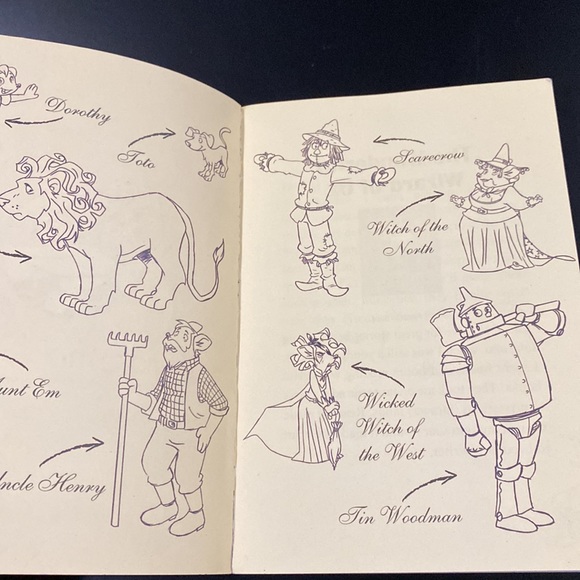 Dorothy
Toto
Aunt Em
Uncle Henry
Scarecrow
Witch of the
North
Wicked
Witch of
the West
Tin Woodman